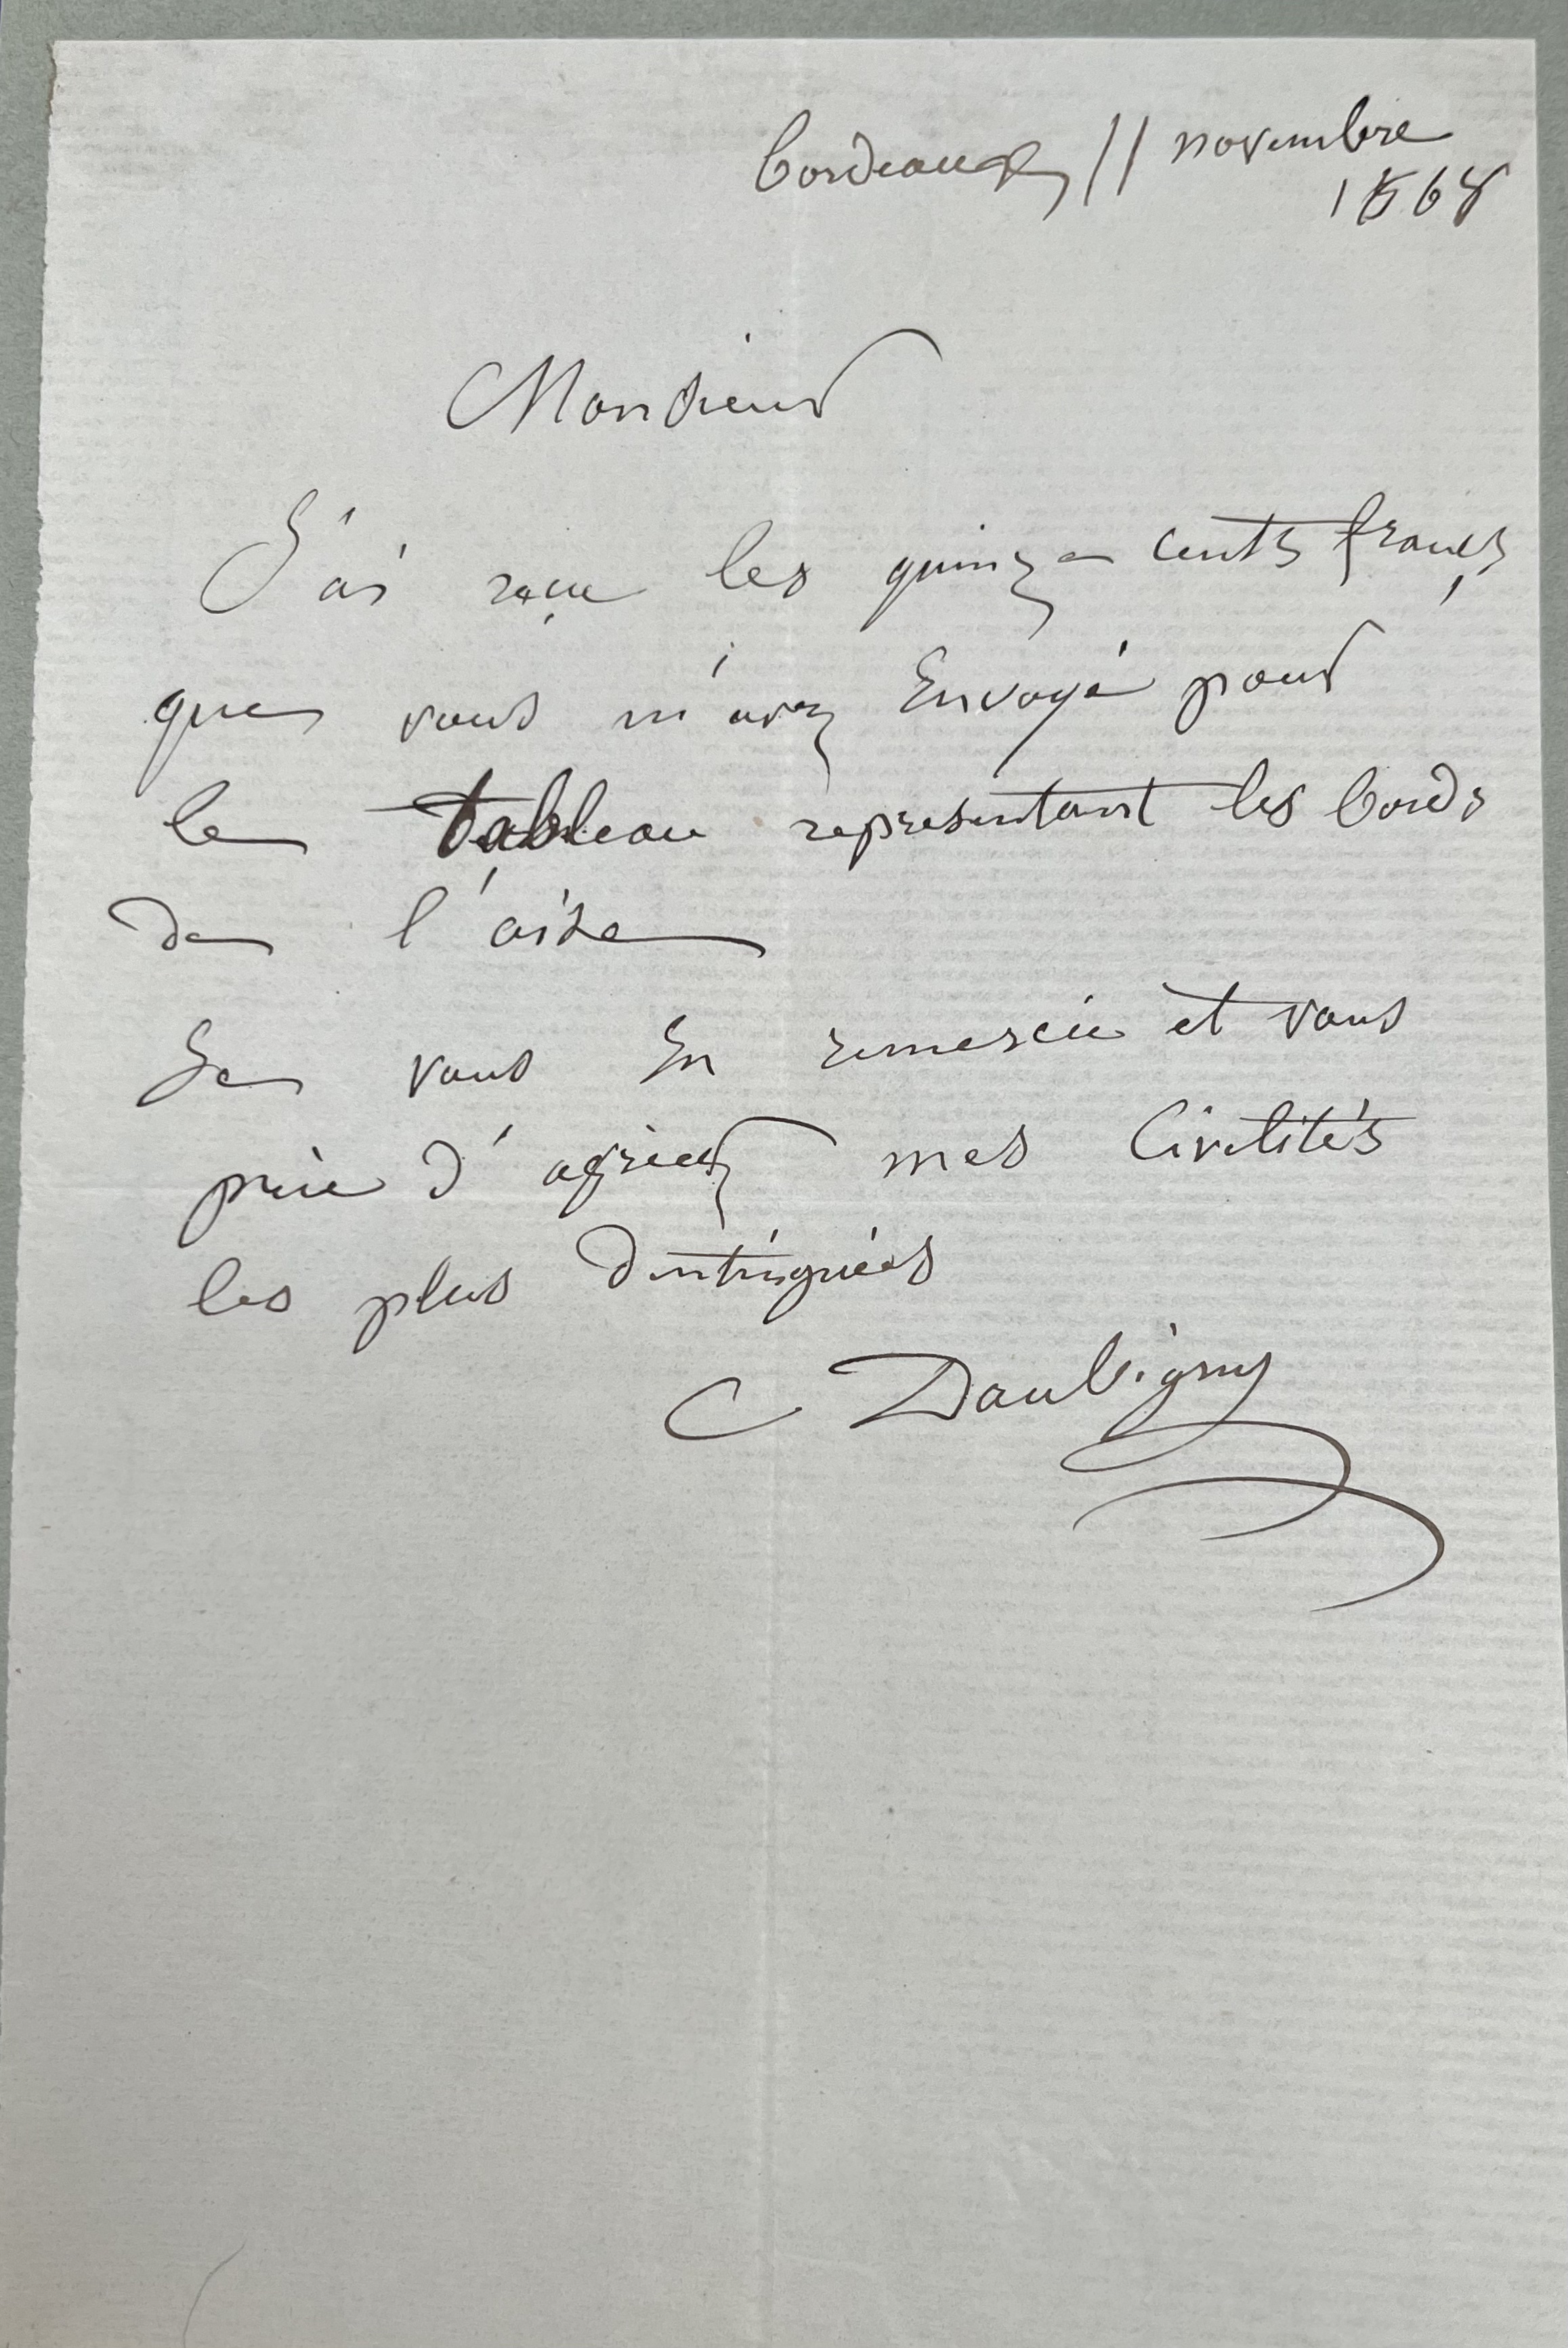 bordeaux 11 novembre
1868
Monsieur
J'ai reçu les quinze cents francs
que vous m'avez Envoyé pour
le tableau representant les bords
de l'oise
Je vous En remercie et vous
prie d'agréer mes Civilités
les plus distinguées
C Daubigny